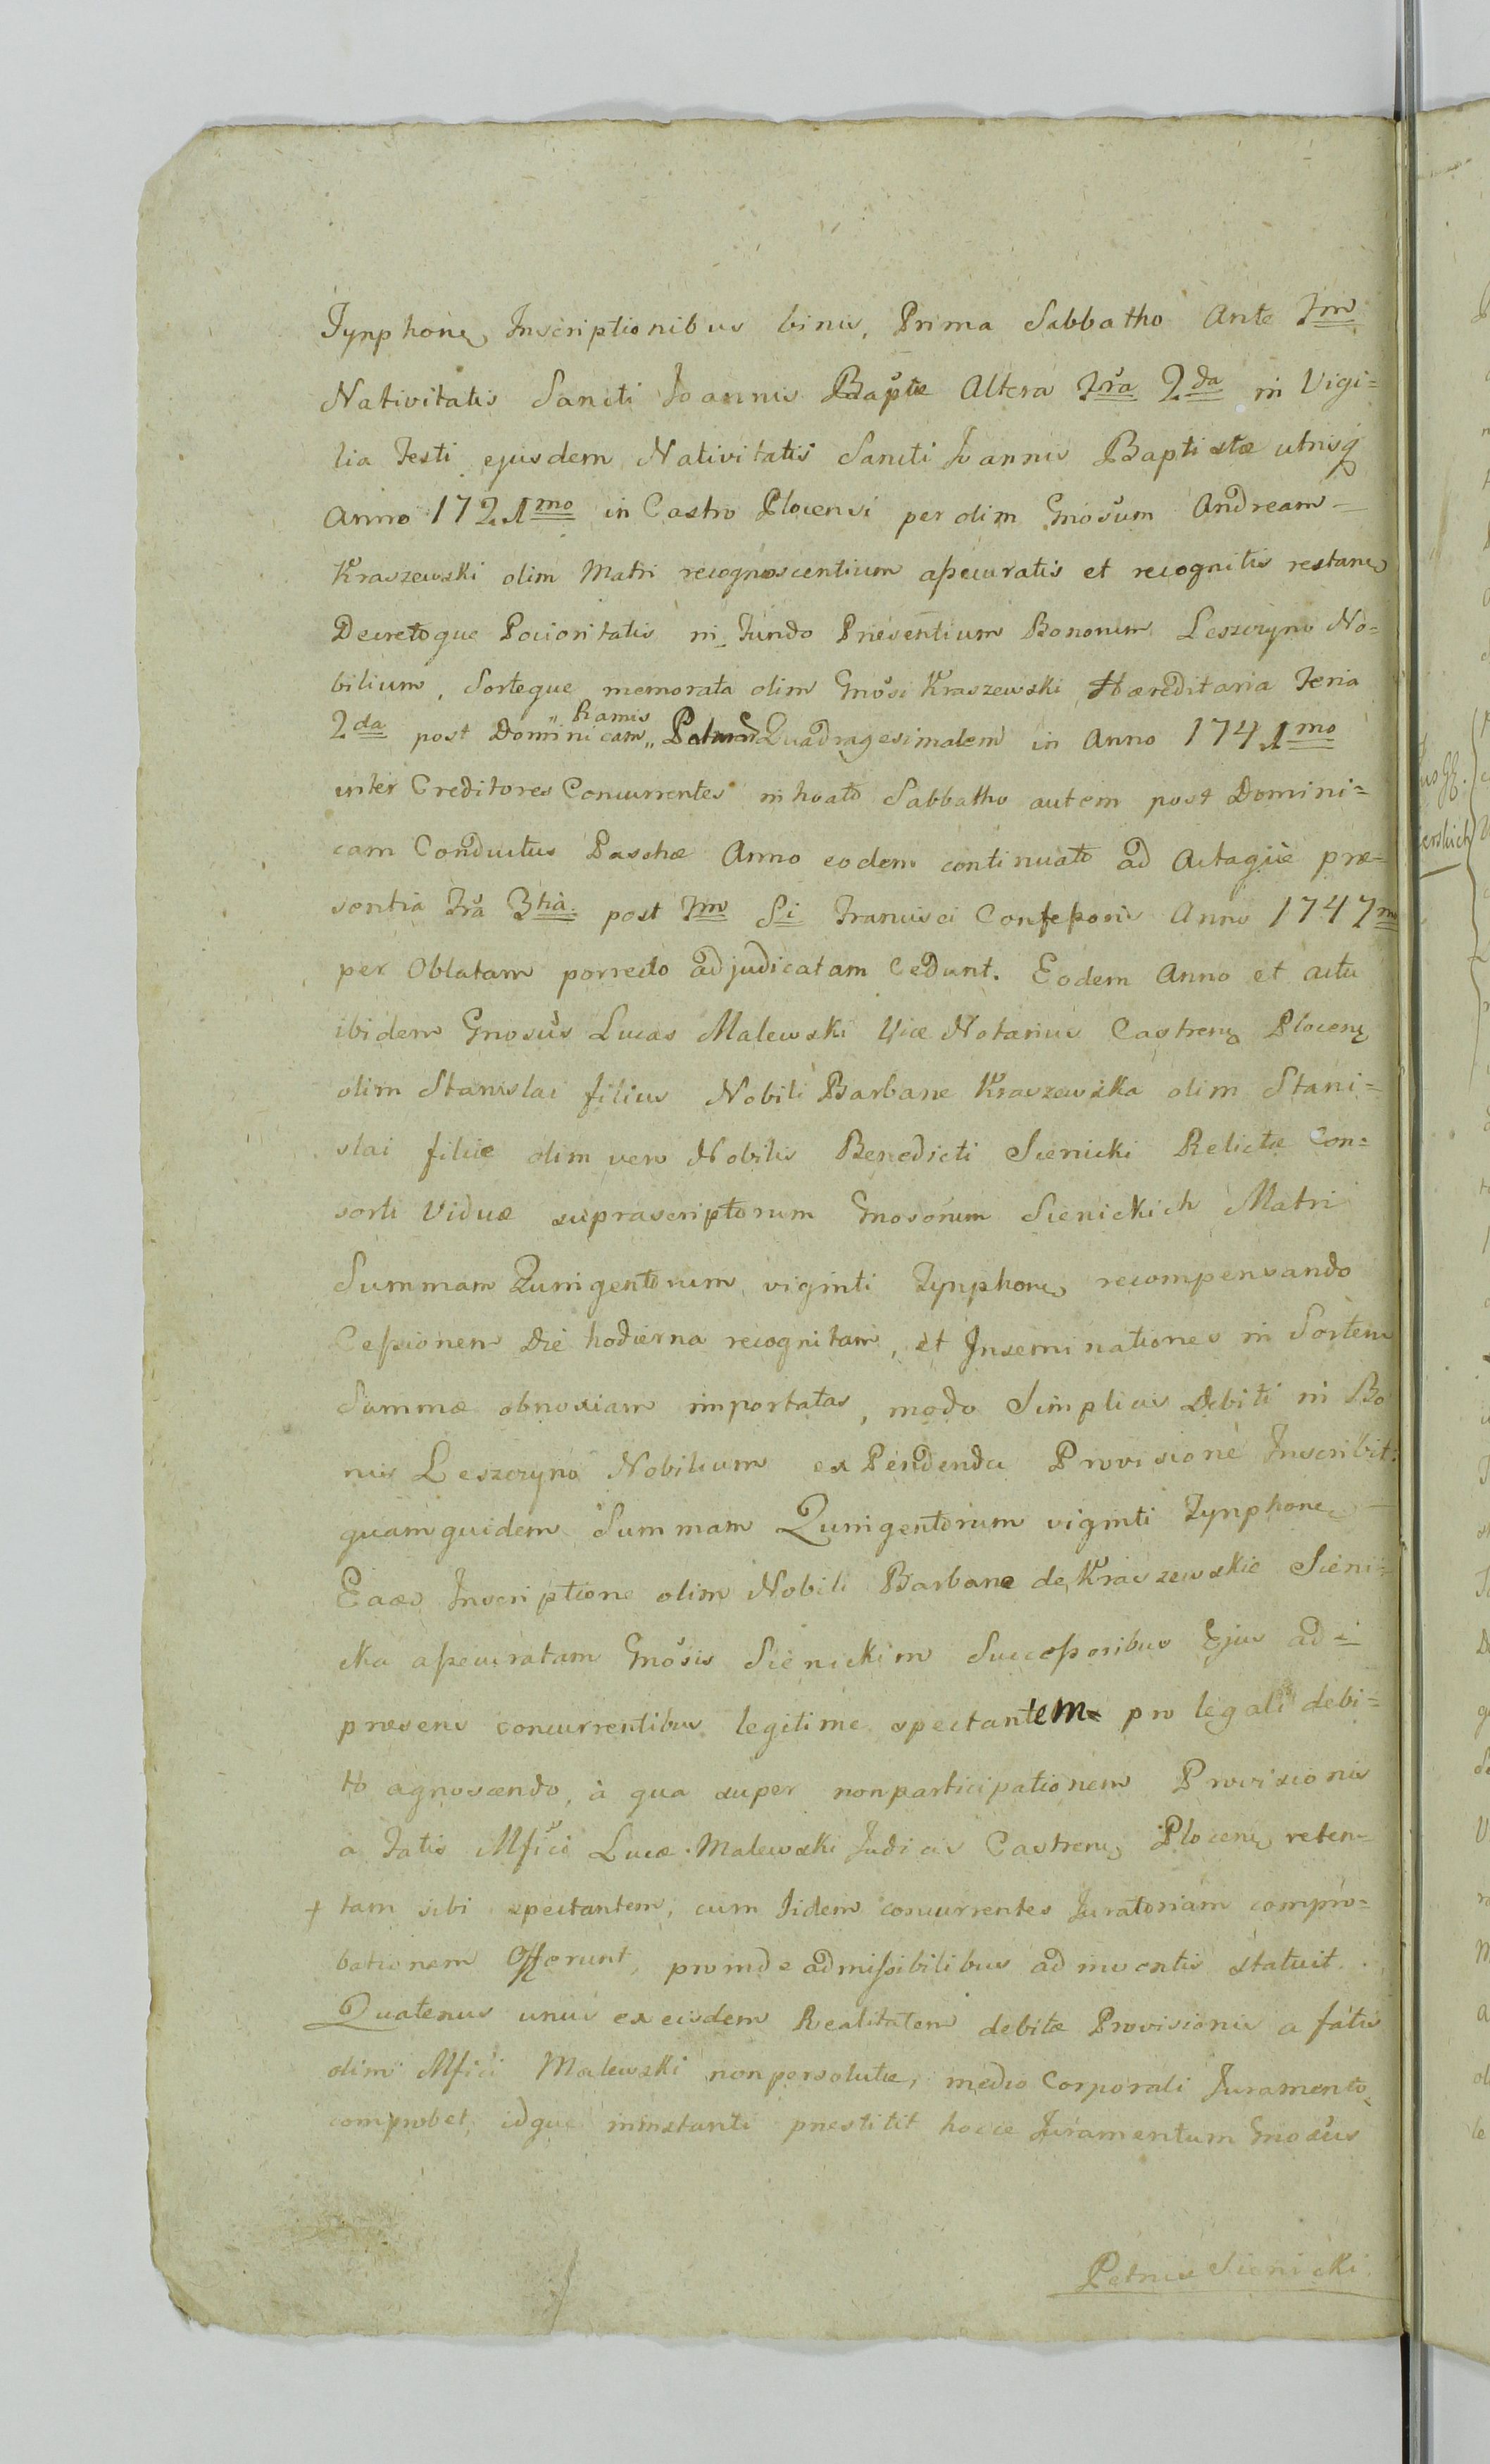 Tynphonũ Inscriptionibus binis, Prima Sabbatho Ante Fm
Nativitatis Sancti Joannis Baptæ Altera Fra 2da in Vigi=
lia Festi ejusdem Nativitatis Sancti Joannis Baptistæ utrisq
Anno 1721mo in Castro Plocensi per olim Gnosum Andream
Kraszewski olim Matri recognoscentium assecuratis et recognitis restanũ
Decretoque Pocioritatis in Fundo Præsentium Bonorum Leszczyno No=
bilium, Sorteque memorata olim Gnosi Kraszewski Hæreditaria Feria
2da post Dominicam „Ramis„ Quadragesimalem in Anno 1741mo
inter Creditores Concurrentes inhoato Sabbatho autem post Domini=
cam Conductus Paschæ Anno eodem continuato ad Actaque præ=
sentia Fra 3tia post Fm Si Francisci Confessoris Anno 1747mo
per Oblatam porrecto adjudicatam Cedunt. Eodem Anno et actu
ibidem Gnosus Lucas Malewski Vice Notarius Castrenũ Plocenũ
olim Stanislai filius Nobili Barbaræ Kraszewska olim Stani=
slai filiæ olim vero Nobilis Benedicti Sienicki Relictæ Con=
sorti Viduæ suprascriptorum Gnosorum Sienickich Matri
Summam Quingentorum viginti Tynphonũ recompensando
Cessionem Die hodierna recognitam, et Inseminationes in Sortem
Summæ obnoxiam importatas, modo Simplicis Debiti in Bo
nis Leszczyno Nobilium ex Pendenda Provisione Inscribit.
quam quidem Summam Quingentorum viginti Tynphonũ
Eaee Inscriptione olim Nobili Barbaræ de Kraszewskie Sieni=
cka assecuratam Gnosis Sienickim Successoribus Ejus ad=
præsens concurrentibus legitime spectantem pro legali debi=
to agnoscendo, à qua super nonparticipationem Provisionis
a Fatis Mfici Lucæ Malewski Judicis Castrenũ Plocenũ reten=
+ tam sibi spectantem, cum Iidem concurrentes Juratoriam compro=
bationem Offerunt, proinde admissibilibus adinventis statuit.
Quatenus unus ex eisdem Realitatem debitæ Provisionis a fatis
olim Mfici Malewski non persolutæ, medio Corporali Juramento
comprobet, idque ininstanti præstitit hocce Juramentum Gnosus
Petrus Sienicki